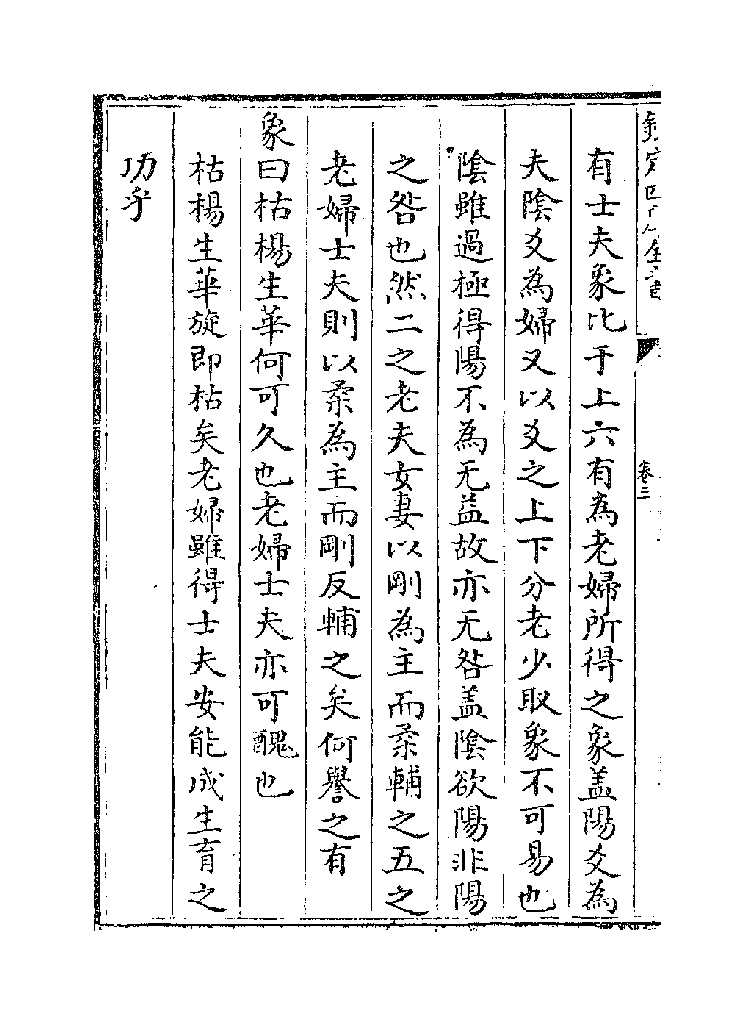 有士夫象比于上六有為老婦所得之象盖陽爻為
夫陰爻為婦又以爻之上下分老少取象不可易也
陰雖過極得陽不為无益故亦无咎盖陰欲陽非陽
之咎也然二之老夫女妻以剛為主而柔輔之五之
老婦士夫則以柔為主而剛反輔之矣何譽之有
象曰枯楊生華何可久也老婦士夫亦可醜也
枯楊生華旋即枯矣老婦雖得士夫安能成生育之
功乎
卷三